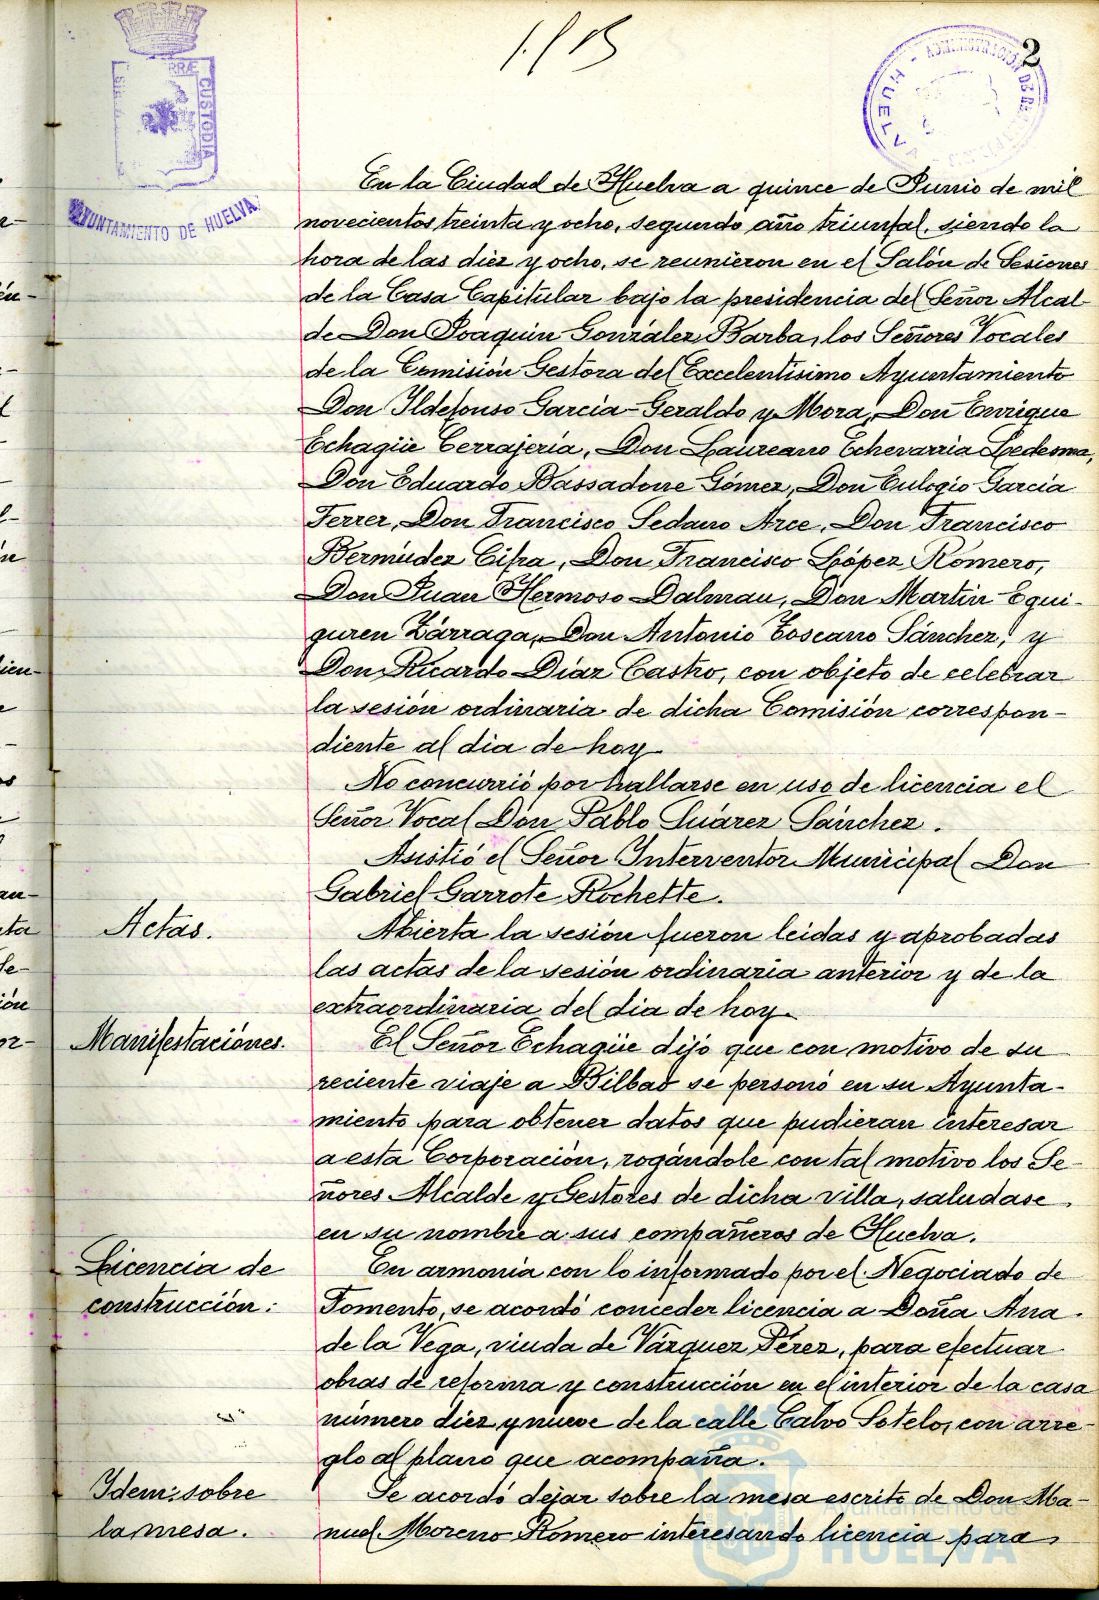 2
CUSTODIA
AYUNTAMIENTO DE HUELVA
ADMINISTRACIÓN DE
HUELVA
En la Ciudad de Huelva a quince de Junio de mil
novecientos treinta y ocho, segundo año triunfal, siendo la
hora de las diez y ocho, se reunieron en el Salón de Sesiones
de la Casa Capitular bajo la presidencia del Señor Alcal-
de Don Joaquin González Barba, los Señores Vocales
de la Comisión Gestora del Excelentisimo Ayuntamiento
Don Ildefonso Garcia-Geraldo y Mora, Don Enrique
Echagüe Cerrajeria, Don Laureano Echevarria Ledesma,
Don Eduardo Bassadone Gómez, Don Eulogio Garcia
Ferrer, Don Francisco Sedano Arce, Don Francisco
Bermúdez Cifra, Don Francisco López Romero,
Don Juan Hermoso Dalmau, Don Martin Equi-
guren Zárraga, Don Antonio Toscano Sánchez, y
Don Ricardo Diaz Castro, con objeto de celebrar
la sesión ordinaria de dicha Comisión correspon-
diente al dia de hoy.
No concurrió por hallarse en uso de licencia el
Señor Vocal Don Pablo Suárez Sánchez.
Asistió el Señor Interventor Municipal Don
Gabriel Garrote Rochette.
Actas.
Abierta la sesión fueron leidas y aprobadas
las actas de la sesión ordinaria anterior y de la
extraordinaria del dia de hoy.
Manifestaciónes.
El Señor Echagüe dijo que con motivo de su
reciente viaje a Bilbao se personó en su Ayunta-
miento para obtener datos que pudieran interesar
a esta Corporación, rogándole con tal motivo los Se-
ñores Alcalde y Gestores de dicha villa, saludase
en su nombre a sus compañeros de Huelva.
Licencia de
construcción:
En armonia con lo informado por el Negociado de
Fomento, se acordó conceder licencia a Doña Ana
de la Vega, viuda de Vázquez Pérez, para efectuar
obras de reforma y construcción en el interior de la casa
número diez y nueve de la calle Calvo Sotelo, con arre-
glo al plano que acompaña.
Idem: sobre
la mesa.
Se acordó dejar sobre la mesa escrito de Don Ma-
nuel Moreno Romero interesando licencia para
Ayuntamiento de
HUELVA